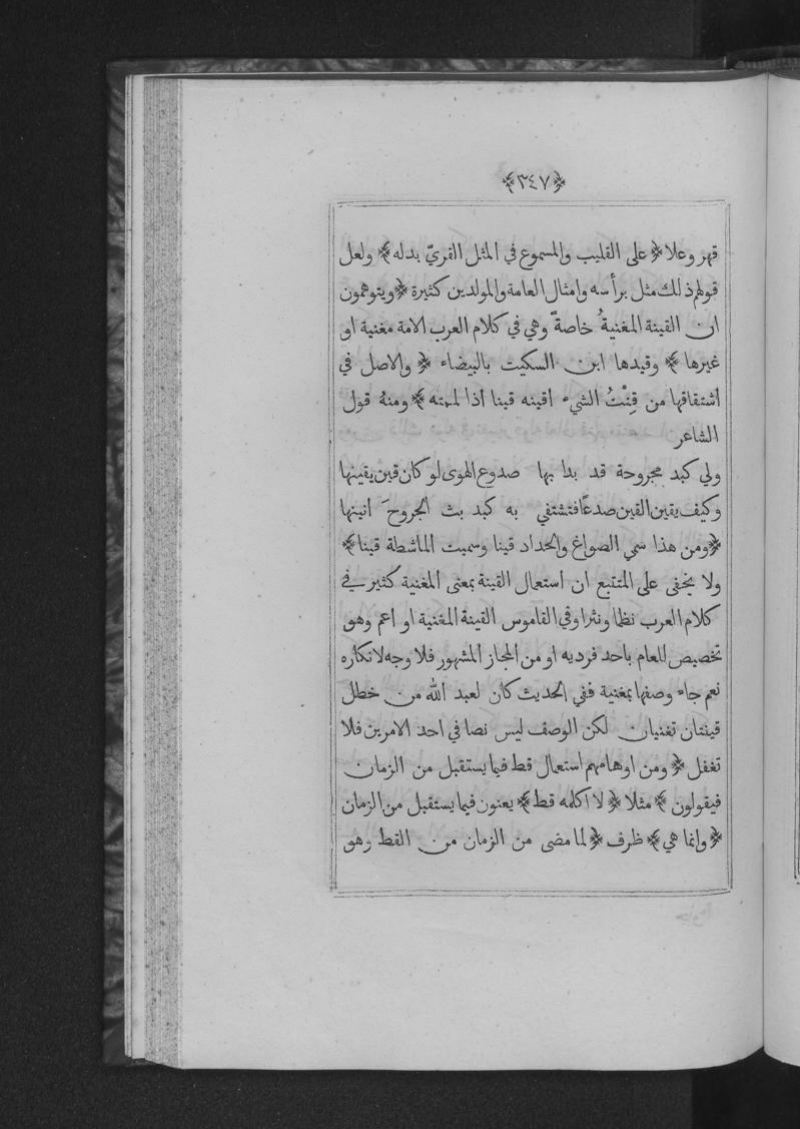 ﴿٣٤٧﴾
قهر وعلا ﴿ على القليب والمسموع في المثل القريّ بدله ﴾ ولعل
قولهم ذلك مثل برأسه وامثال العامة والمولدين كثيرة ﴿ ويتوهمون
ان القينة المغنيةُ خاصةً وهي في كلام العرب الامة مغنية او
غيرها ﴾ وقيدها ابن السكيت بالبيضاء ﴿ والاصل في
اشتقاقها من قِنْتُ الشيء اقينه قينا اذا لممته ﴾ ومنهُ قول
الشاعر
ولي كبد مجروحة قد بدا بها صدوع الهوى لو كان قين يقينها
وكيف يقين القين صدعًا فتشتفي به كبد بث الجروحَ انينها
﴿ ومن هذا سمي الصواغ والحداد قينا وسميت الماشطة قينا ﴾
ولا يخفى على المتتبع ان استعمال القينة بمعنى المغنية كثير في
كلام العرب نظما ونثرا وفي القاموس القينة المغنية او اعم وهو
تخصيص للعام باحد فرديه او من المجاز المشهور فلا وجه لانكاره
نعم جاء وصفها بمغنية ففي الحديث كان لعبد الله من خطل
قينتان تغنيان لكن الوصف ليس نصا في احد الامرين فلا
تغفل ﴿ ومن اوهامهم استعمال قط فيما يستقبل من الزمان
فيقولون ﴾ مثلا ﴿ لا اكلمه قط ﴾ يعنون فيما يستقبل من الزمان
﴿ وانما هي ﴾ ظرف ﴿ لما مضى من الزمان من القط وهو